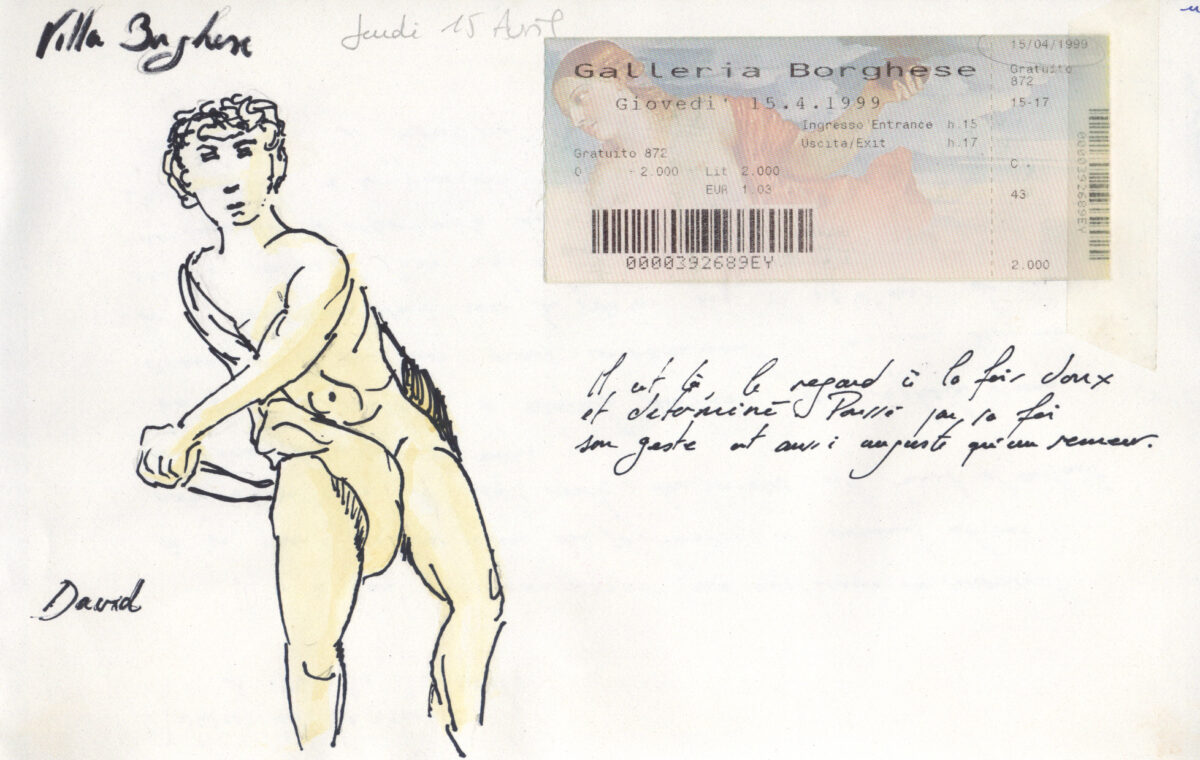 Villa Borghese
Jeudi 15 Avril
Galleria Borghese
Giovedi' 15.4.1999
Ingresso/Entrance h.15
Uscita/Exit h.17
Gratuito 872
0 - 2.000 Lit 2.000
EUR 1.03
0000392689EY
15/04/1999
Gratuito
872
15-17
C.
43
2.000
0000392689EY
Il est là, le regard à la fois doux
et déterminé Poussé par sa foi
son geste est aussi auguste qu'un semeur.
David